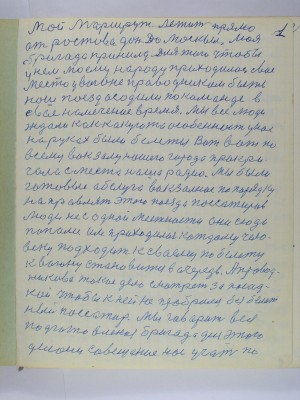 1
Мой Маршрут лежит прямо
от ростова дон до Москвы. Моя
бригада пришла для того чтобы
у нем моему народу приходилось свое
место у вагоне проводникам быть
наш поезд садили по команде в
свае намеченое время. Мы все люди
ждали как какуюто особенност у нас
на руках были белеты Вот в ат по
всему вокзалу нашего города прокри
чала с места наша радио. Мы были
готовые абслуга вокзалное по порядку
на правлят этого поезда поссажиров
люди не с одной Местности они сюда
попали им приходилос каждому чело-
веку подходит к сваему по белету
к вагону становится в очередь. А провод-
никова такое дело смотрет за посад-
кой чтобы к ней не пробрался без белет
ный поссажир. Мы гаварат вся
подготовленая бригада для этого
делаем совещание нас учат по